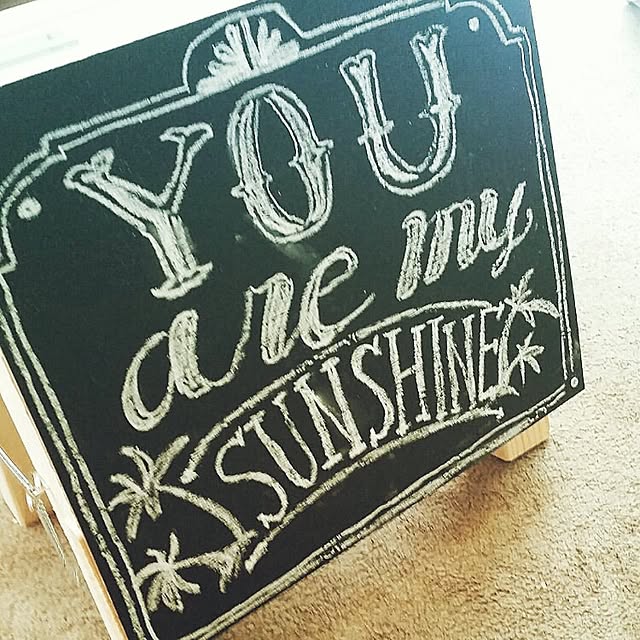 YOU
are my
SUNSHINE